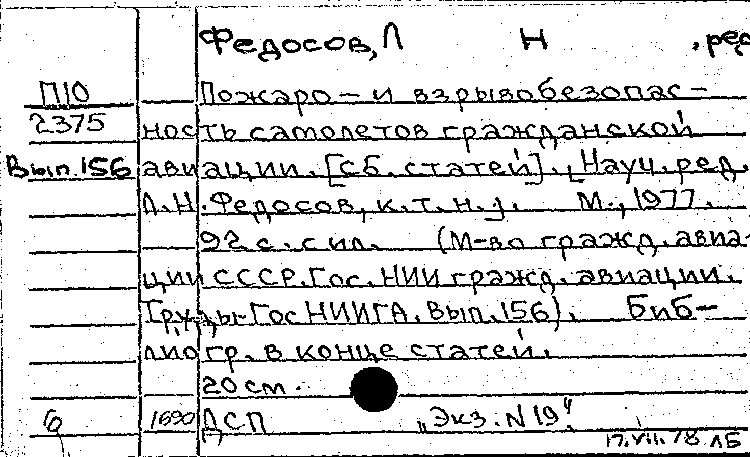 Федосов, Л Н , ред
П10 Пожаро- и взрывобезопас-
2375 ность самолетов гражданской
Вып.156 авиации. [Сб. статей]. [Науч. ред.
Л.Н. Федосов, к.т.н.]. М., 1977.
92 с. с ил. (М-во гражд. авиа-
ции СССР. Гос. НИИ гражд. авиации.
Труды Гос НИИГА. Вып. 156). Биб-
лиогр. в конце статей.
20 см.
б 1690 ДСП "Экз. N 19"
17.VII.78 ЛБ